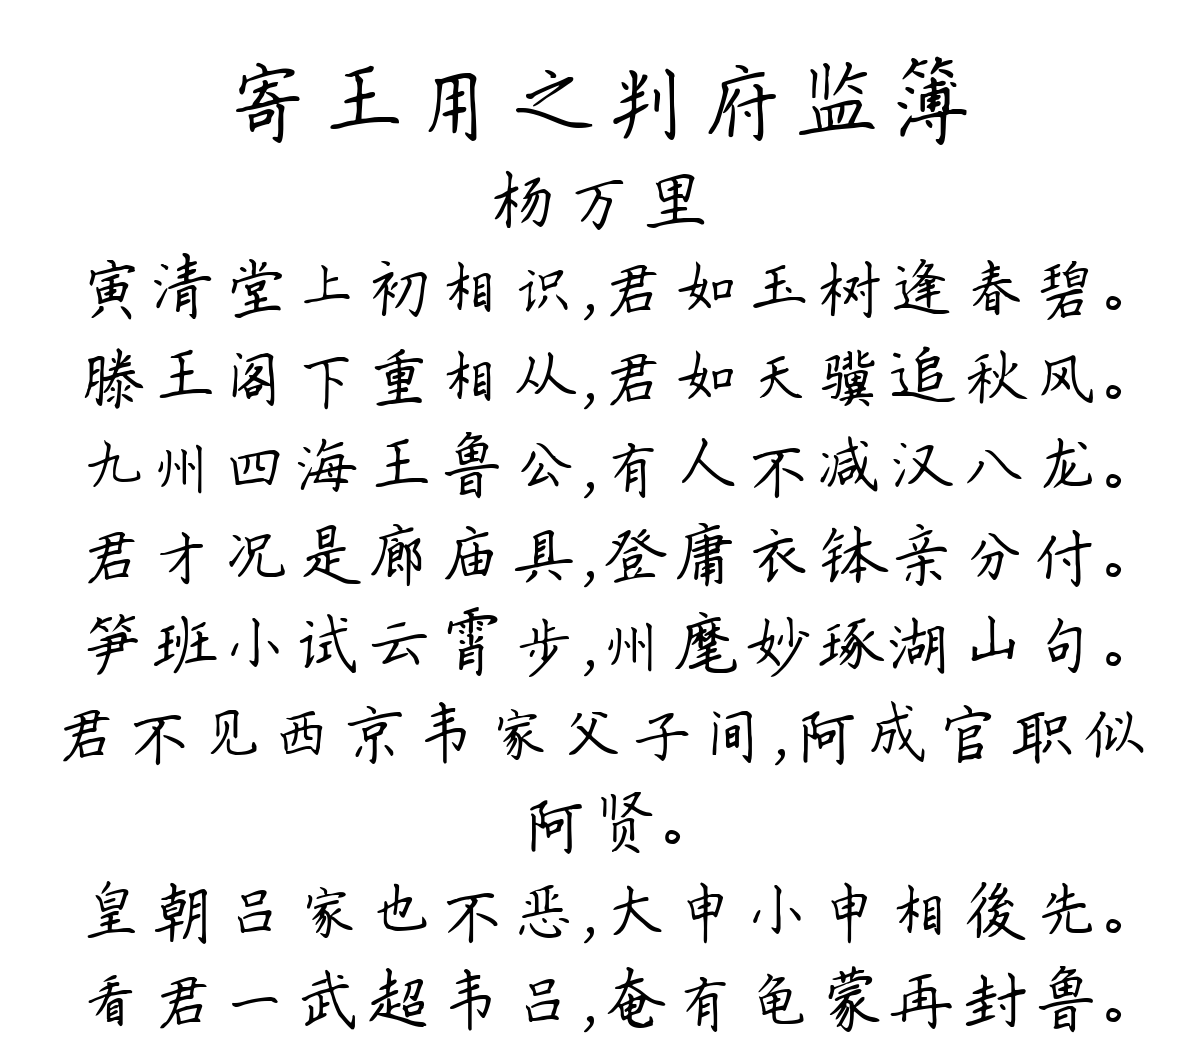 寄王用之判府监簿
杨万里
寅清堂上初相识,君如玉树逢春碧。
滕王阁下重相从,君如天骥追秋风。
九州四海王鲁公,有人不减汉八龙。
君才况是廊庙具,登庸衣钵亲分付。
笋班小试云霄步,州麾妙琢湖山句。
君不见西京韦家父子间,阿成官职似
阿贤。
皇朝吕家也不恶,大申小申相後先。
看君一武超韦吕,奄有龟蒙再封鲁。